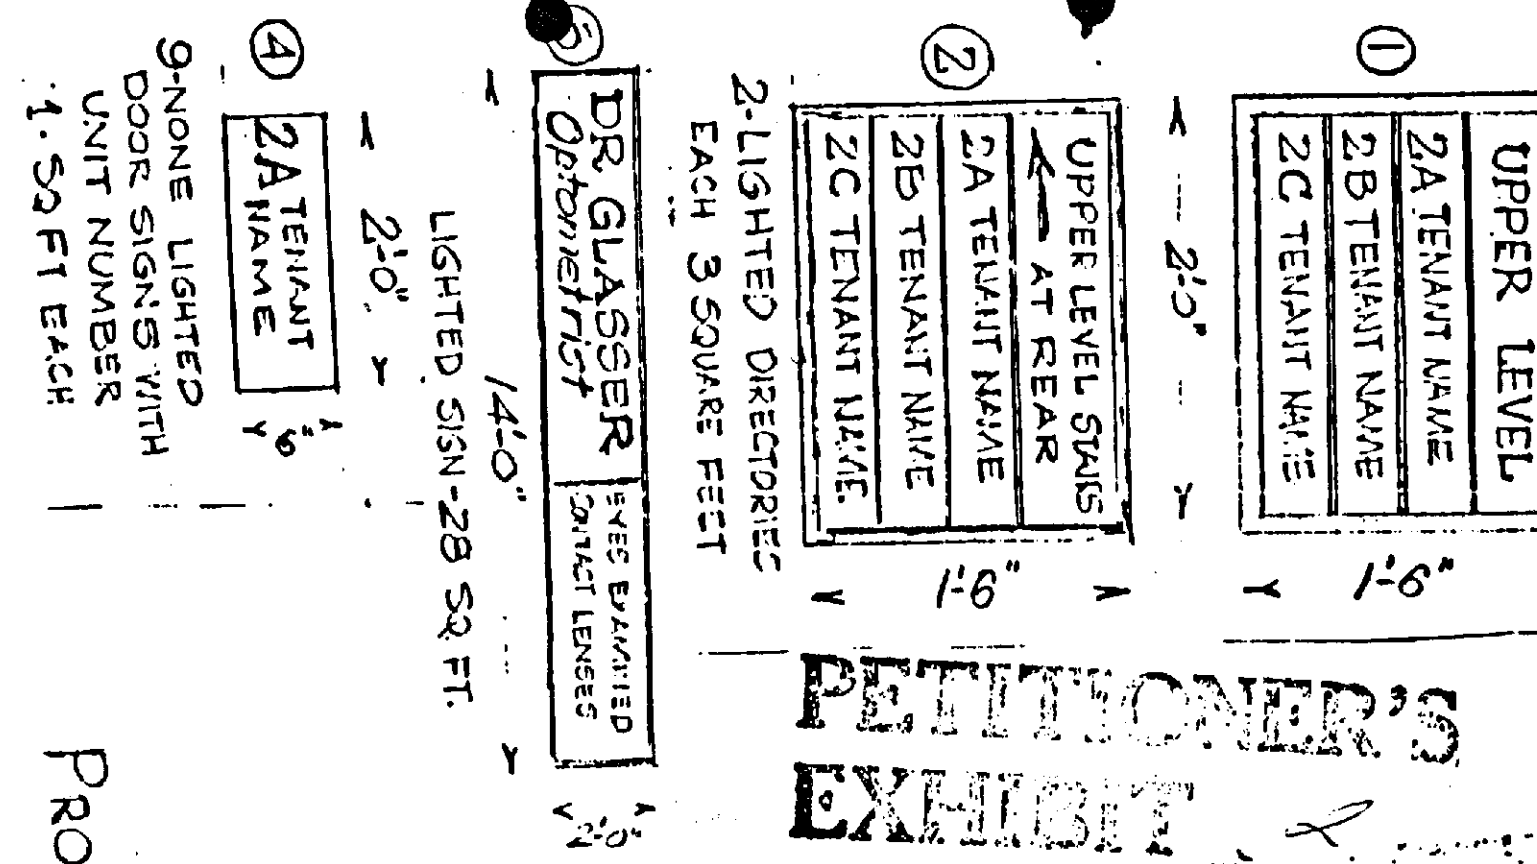 1
UPPER LEVEL
2A TENANT NAME
2B TENANT NAME
2C TENANT NAME
1'-6"
2'-0"
2
UPPER LEVEL STAIRS
← AT REAR
2A TENANT NAME
2B TENANT NAME
2C TENANT NAME
1'-6"
2-LIGHTED DIRECTORIES
EACH 3 SQUARE FEET
DR. GLASSER
Optometrist
EYES EXAMINED
CONTACT LENSES
2'-0"
14'-0"
LIGHTED SIGN-28 SQ. FT.
4
2A TENANT
NAME
6"
2'-0"
9-NONE LIGHTED
DOOR SIGN'S WITH
UNIT NUMBER
1. SQ FT EACH
PETITIONER'S
EXHIBIT 2
PRO